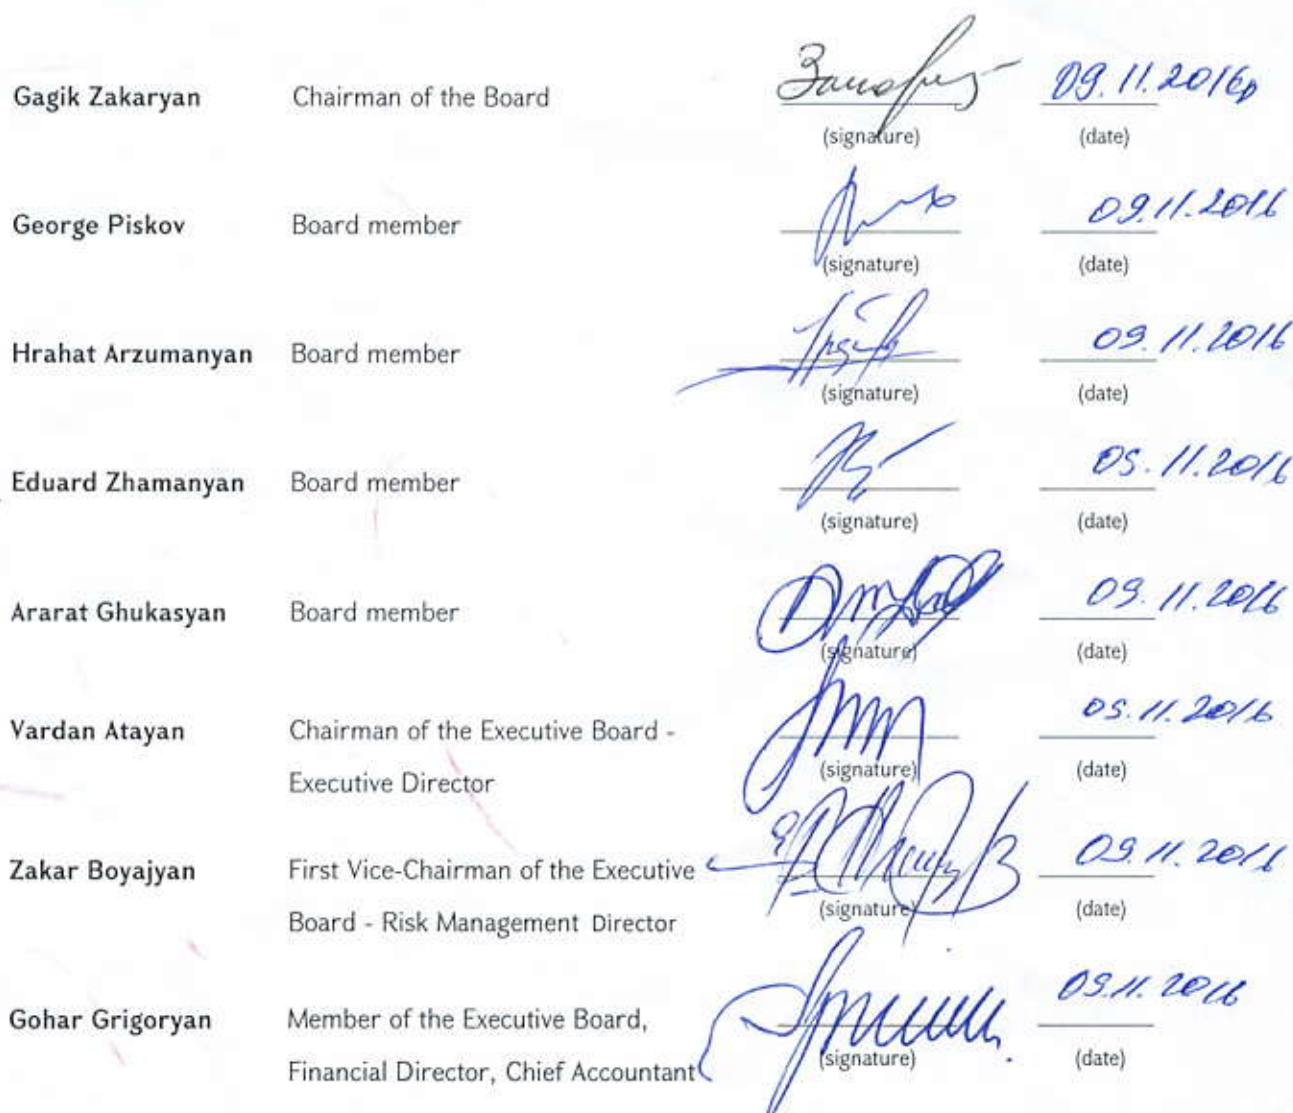 Gagik Zakaryan Chairman of the Board 09.11.2016
(signature) (date)
George Piskov Board member 09.11.2016
(signature) (date)
Hrahat Arzumanyan Board member 09.11.2016
(signature) (date)
Eduard Zhamanyan Board member 09.11.2016
(signature) (date)
Ararat Ghukasyan Board member 09.11.2016
(signature) (date)
Vardan Atayan Chairman of the Executive Board - 09.11.2016
Executive Director (signature) (date)
Zakar Boyajyan First Vice-Chairman of the Executive 09.11.2016
Board - Risk Management Director (signature) (date)
Gohar Grigoryan Member of the Executive Board, 09.11.2016
Financial Director, Chief Accountant (signature) (date)